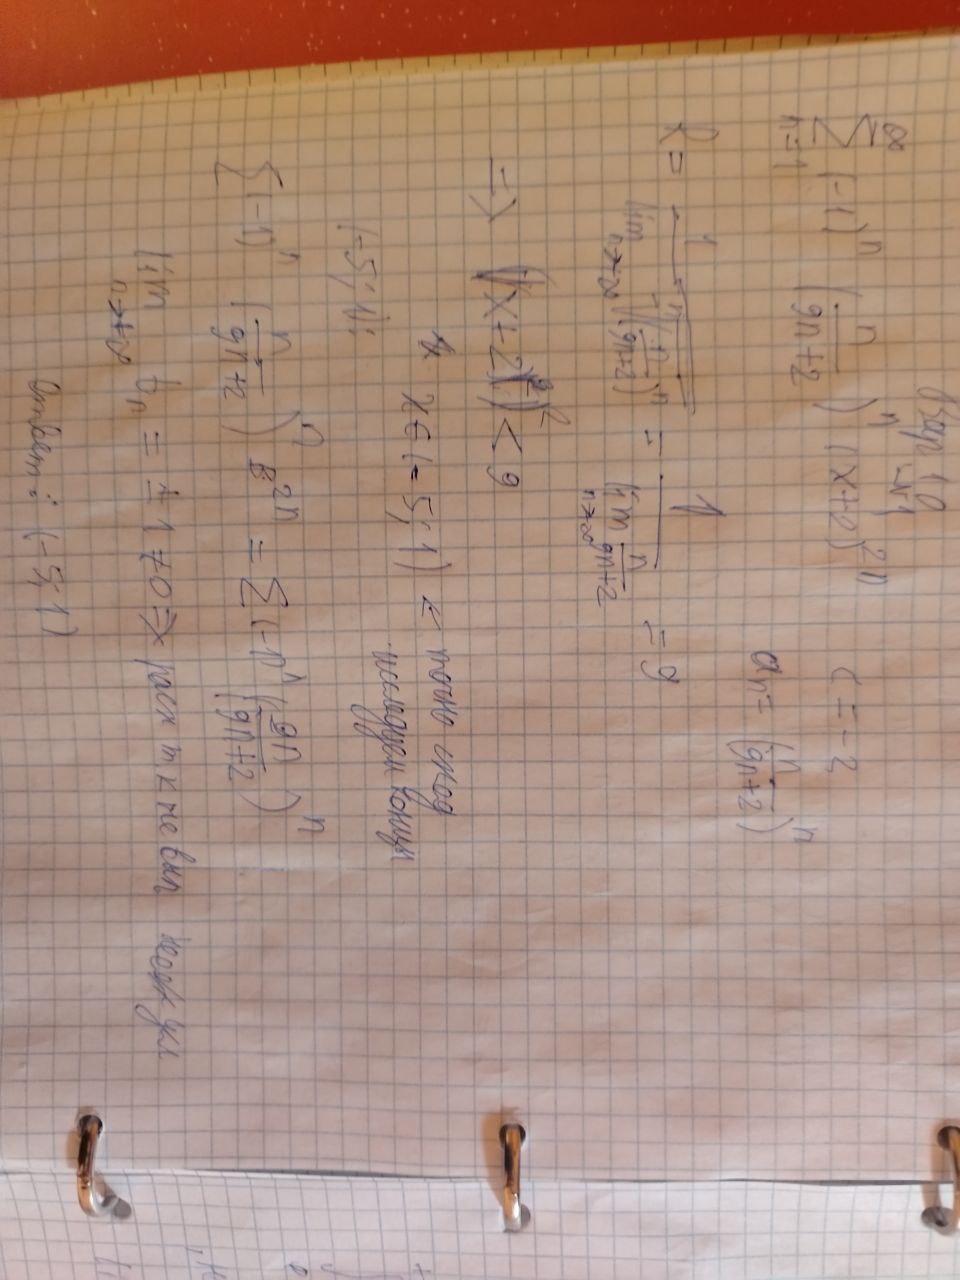 Вар 10
№1
∑_{n=1}^{∞} (-1)^n (n/(9n+2))^n (x+2)^{2n} c = -2
a_n = (n/(9n+2))^n
R = 1/(lim_{n→+∞} ⁿ√((n/(9n+2))^n)) = 1/(lim_{n→+∞} n/(9n+2)) = 9
=> (x+2)^2 < 9
x ∈ (-5; 1) ← точно сход
(-5; 1): исследуем концы
∑ (-1)^n (n/(9n+2))^n 3^{2n} = ∑ (-1)^n (9n/(9n+2))^n
lim_{n→+∞} b_n = ± 1 ≠ 0 => расх т к не вып необх усл
Ответ: (-5; 1)